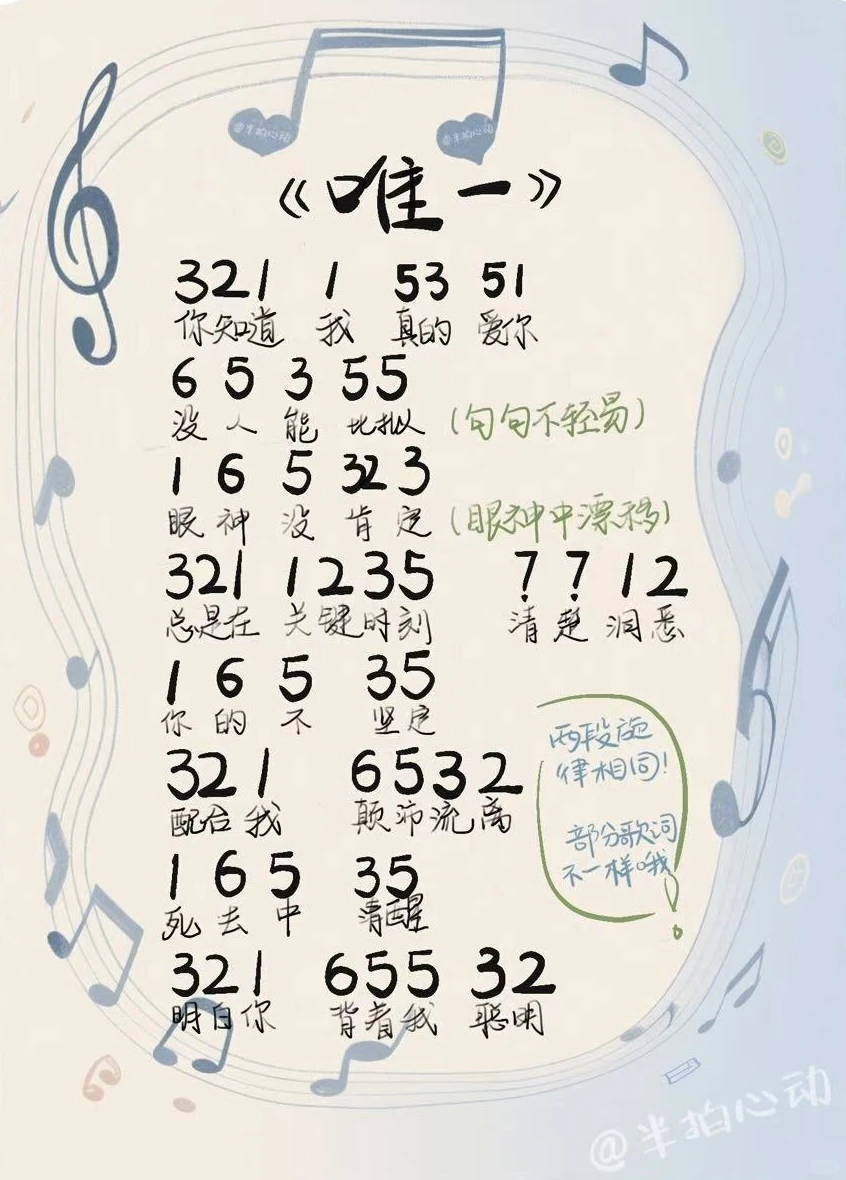 @半拍心动 @半拍心动
《唯一》
321 1 53 51
你知道 我 真的 爱你
6 5 3 55
没 人 能 比拟 (句句不轻易)
1 6 5 32 3
眼 神 没 肯 定 (眼神中漂移)
321 1235 7̣ 7̣ 12
总是在 关键时刻 清楚 洞悉
1 6 5 35
你 的 不 坚定
321 6532
配合我 颠沛流离
两段旋
律相同!
部分歌词
不一样哦
1 6 5 35
死 去 中 清醒
321 655 32
明白你 背着我 聪明
@半拍心动